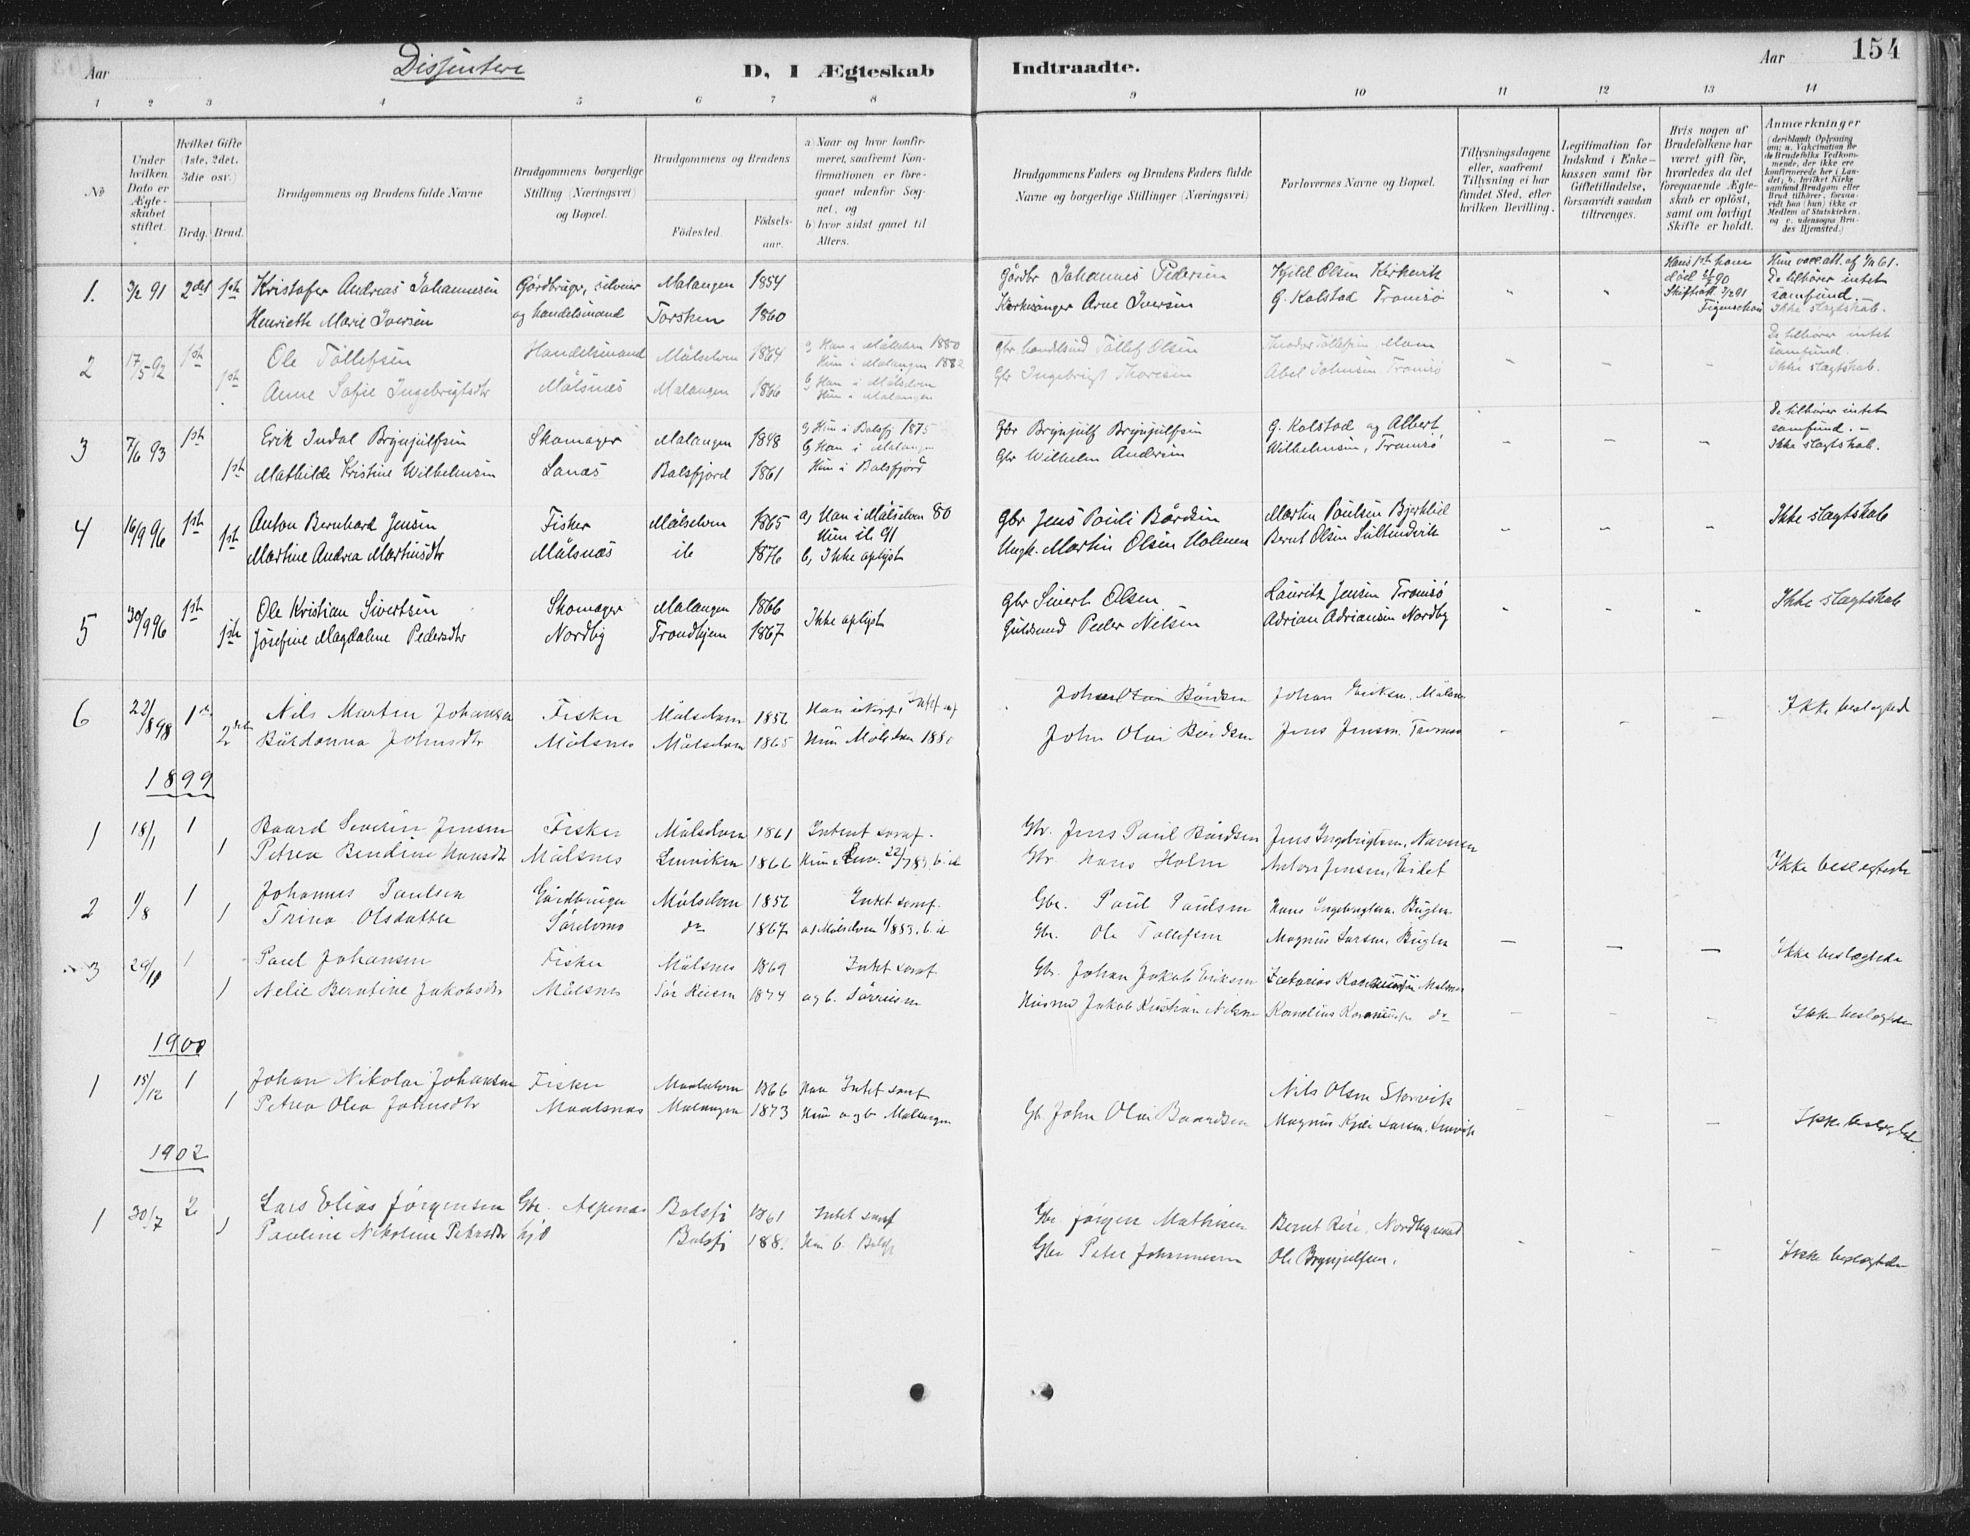 Aar Dissentere D, I Ægteskab Indtraadte. Aar 154
1 2 3 4 5 6 7 8 9 10 11 12 13 14
No
Under hvilken Dato er Ægteskabet stiftet.
Hvilket Gifte (1ste, 2det. 3die osv.)
Brdg. Brud.
Brudgommens og Brudens fulde Navne
Brudgommens borgerlige Stilling (Næringsvei) og Bopæl.
Brudgommens og Brudens
Fødested.
Fødselsaar.
a) Naar og hvor konfirmeret, saafremt Konfirmationen er foregaaet udenfor Sognet, og
b) hvor sidst gaaet til Alters.
Brudgommens Faders og Brudens Faders fulde Navne og borgerlige Stillinger (Næringsvei)
Forlovernes Navne og Bopæl.
Tillysningsdagene eller, saafremt Tillysning ei har fundet Sted, efter hvilken Bevilling.
Legitimation for Indskud i Enkekassen samt for Giftetilladelse, forsaavidt saadan tiltrænges.
Hvis nogen af Brudefolkene har været gift før, hvorledes da det foregaaende Ægteskab er opløst, samt om lovligt Skifte er holdt.
Anmærkninger (deriblandt Oplysning om: a. Vakcination for de Brudefolks Vedkommende, der ikke ere konfirmerede her i Landet; b. hvilket Kirkesamfund Brudgom eller Brud tilhører, forsaavidt han (hun) ikke er Medlem af Statskirken, og c. udensogns Brudes Hjemsted.)
1. 3/2 91 2det 1ste Kristofer Andreas Johannesen Gårdbruger, Malangen 1854 Gårdbr Johannes Pedersen Kjeld Olsen Kirkevik Hans 1ste kone
Henriette Marie Iversen og handelsmand Torsken 1860 Kirkesanger Arne Iversen G. Kolstad Tromsø død De tilhører intet samfund. Ikke slægtskab.
2 17/5 92 1ste Ole Tollefsen Handelsmand Målselven 1864 a) Han i Målselven 1880 Gbr handelsmd Tollef Olsen De tilhører intet
Hun i Malangen 1882 samfund.
1ste Anne Sofie Ingebrigtsdtr Målsnæs Malangen 1866 b) Han i Målselven Gbr Ingebrigt Thoresen Abel Johnsen Tromsø Ikke slægtskab.
Hun i Malangen
3 7/6 93 1ste Erik Indal Brynjulfsen Skomager Malangen 1848 a) Hun i Balsfj 1875 Gbr Brynjulf Brynjulfsen G. Kolstad og Albert De tilhører intet
b) Han i Malangen samfund. –
1ste Mathilde Kristine Wilhelmsen Sanæs Balsfjord 1861 Hun i Balsfjord Gbr Wilhelm Andersen Wilhelmsen, Tromsø Ikke slægtskab.
4 16/9 96 1ste Anton Bernhard Jensen Fisker Målselven 1865 a) Han i Målselven 80 Gbr Jens Pouli Bårdsen Martin Poulsen Bjerklid Ikke slægtskab
Hun ib 91
1ste Martine Andrea Martinsdtr Målsnæs ib 1876 b) Ikke oplyst Ungk. Martin Olsen Holmen Bernt Olsen Sultindvik
5 30/9 96 1ste Ole Kristian Sivertsen Skomager Malangen 1866 Ikke oplyst Gbr Sivert Olsen Lauritz Jensen Tromsø Ikke slægtskab
1ste Josefine Magdalene Pedersdtr Nordby Trondhjem 1867 Guldsmd Peder Nilsen Adrian Adriansen Nordby
6 22/8 98 1ste Nils Martin Johansen Fisker Målselven 1856 Johan Eriksen. Målsnes Ikke beslægted
2den Bårdonna Johnsdtr Målsnes Målselven 1865 Hun Målselven 1880 John Olai Bårdsen Jens Jensen. Tromsø
1899
1 18/1 1 Baard Severin Jensen Fisker Målselven 1861 Intet samf. Gbr. Jens Paul Bårdsen Jens Ingebrigtsen, Navaren
1 Petrea Bendine Hansdtr Målsnes Lenviken 1866 Gbr Hans Holm Anton Jensen, Eidet Ikke beslægtede
2 1/8 1 Johannes Paulsen Gårdbruger Målselven 1856 Intet samf. Gbr. Paul Paulsen Hans Ingebrigtsen. Buglen
1 Trina Olsdatter do 1867 a) Målselven 1883. b. d Gbr. Ole Tollefsen Magnus Larsen. Buglen Ikke beslægtede
3 29/10 1 Paul Johansen Fisker Målsnes 1869 Intet samf Gbr. Johan Jakob Eriksen
1 Nelie Berntine Jakobsdtr Målsnes Sør Reisen 1874 a og b. Sørreisen Husmd Jakob Kristian Nilsen Kornelius do Ikke beslægtede
1900
1 15/12 1 Johan Nikolai Johansen Fisker Maalselven 1866 Han Intet samf Nils Olsen Storvik
1 Petrea Olea Johnsdtr Maalsnæs Malangen 1873 Hun a og b Malangen Gb. John Olai Baardsen Magnus Kjær Larsen. Ikke beslægtede.
1902
1 30/7 2 Lars Elias Jørgensen Gbr. Aspenes Balsfj 1861 Intet samf Gbr Jørgen Mathisen Bernt Reie. Nordbymd
1 Pauline Nikoline Petersdtr hjd Balsfj Hun b. Balsfj Gbr Peter Johannesen Ole Brynjulfsen. Ikke beslægtede